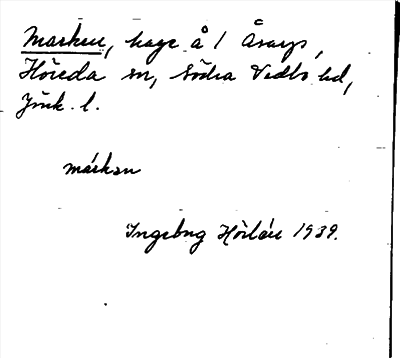 Marken, hage å 1 Åsarp,
Höreda sn, Södra Vedbo hd,
Jönk. l.
márkən
Ingeborg Hörlén 1939.